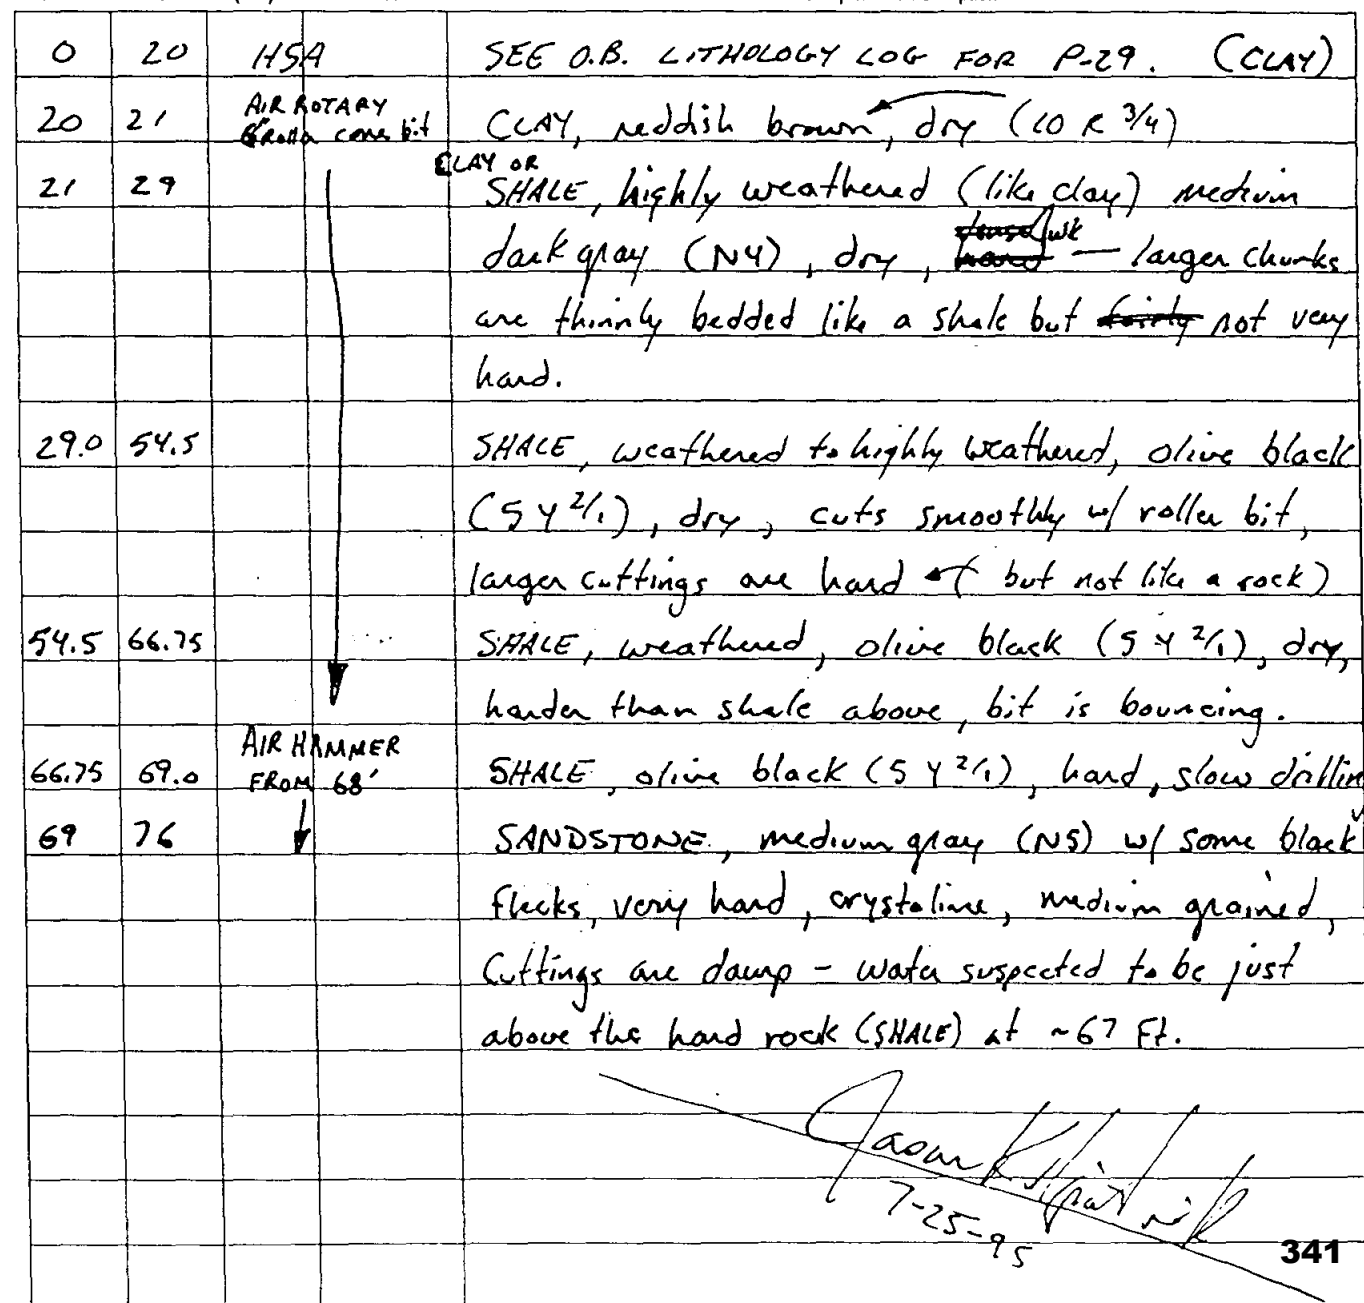 0 20 HSA SEE O.B. LITHOLOGY LOG FOR P-29. (CLAY)
20 21 AIR ROTARY CLAY, reddish brown, dry (10 R 3/4)
cone bit
CLAY OR
21 29 SHALE, highly weathered (like clay) medium
dark gray (N4), dry, — larger chunks
are thinnly bedded like a shale but fairly not very
hard.
29.0 54.5 SHALE, weathered to highly weathered, olive black
(5 Y 2/1), dry, cuts smoothly w/ roller bit,
larger cuttings are hard (but not like a rock)
54.5 66.75 SHALE, weathered, olive black (5 Y 2/1), dry,
harder than shale above, bit is bouncing.
AIR HAMMER
66.75 69.0 FROM 68' SHALE, olive black (5 Y 2/1), hard, slow drilling
69 76 SANDSTONE, medium gray (N5) w/ some black
flecks, very hard, crystaline, medium grained,
Cuttings are damp - water suspected to be just
above the hard rock (SHALE) at ~67 Ft.
Jason Kilpatrick
7-25-95
341